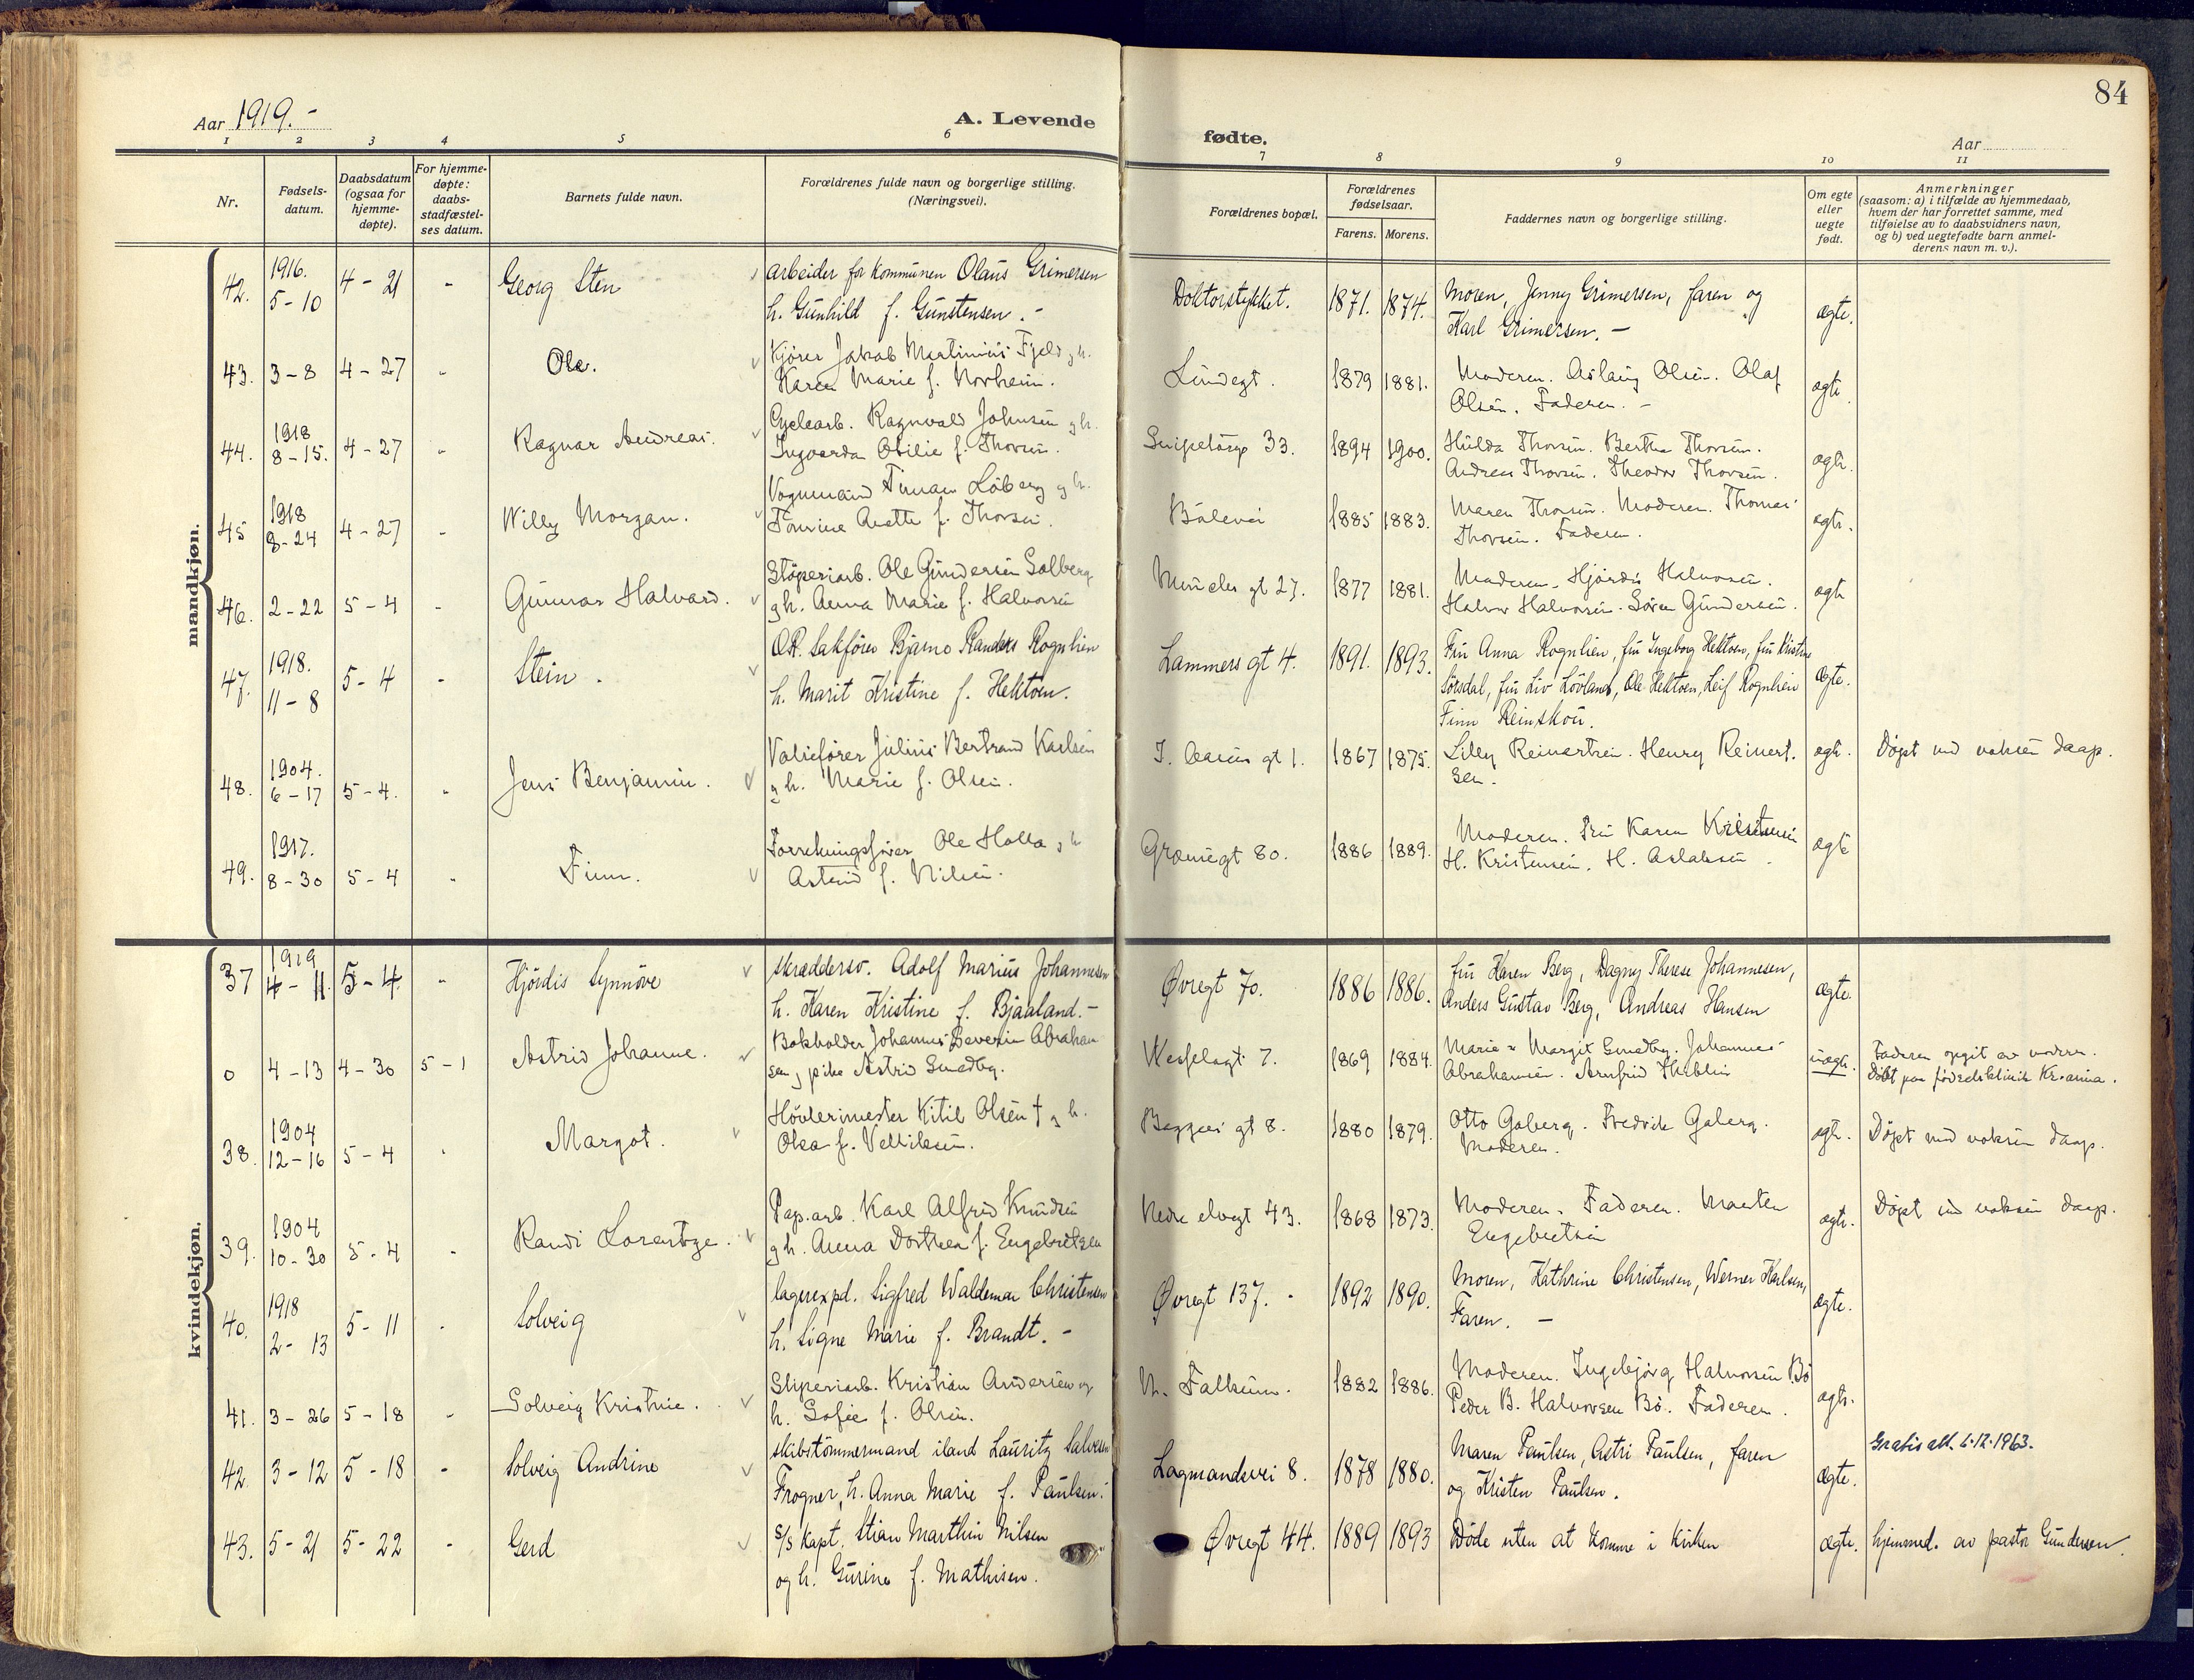 84
Aar 1919.-
A. Levende
fødte.
Aar
1 2 3 4 5 6 7 8 9 10 11
Nr.
Fødsels-
datum.
Daabsdatum
(ogsaa for
hjemme-
døpte).
For hjemme-
døpte:
daabs-
stadfæstel-
ses datum.
Barnets fulde navn.
Forældrenes fulde navn og borgerlige stilling.
(Næringsvei).
Forældrenes bopæl.
Forældrenes
fødselsaar.
Farens. Morens.
Faddernes navn og borgerlige stilling.
Om egte
eller
uegte
født.
Anmerkninger
(saasom: a) i tilfælde av hjemmedaab,
hvem der har forrettet samme, med
tilføielse av to daabsvidners navn,
og b) ved uegtefødte barn anmel-
derens navn m. v.).
mandkjøn.
42. 1916. 5-10 4-21 - Georg Sten
arbeider for kommunen Olaus Grimersen
h. Gunhild f. Gunstensen.-
Doktorstykket. 1871. 1874.
Moren, Jenny Grimersen, faren og
Karl Grimersen.-
ægte.
43. 3-8 4-27 - Ole.
Kjører Jakob Martinius Fjeld og h.
Karen Marie f. Norheim.
Lundegt. 1879 1881.
Moderen. Aslaug Olsen. Olaf
Olsen. Faderen.-
ægte.
44. 1918 8-15. 4-27 - Ragnar Andreas.
Cyclearb. Ragnvald Johnsen og h.
Ingvarda Otilie f. Thorsen.
Snipetorp 33. 1894 1900.
Hulda Thorsen. Bertha Thorsen.
Andreas Thorsen. Theodor Thorsen.
ægte.
45 1918 8-24 4-27 - Willy Morgan.
Vognmand Løberg og h.
f. Thorsen.
Bølevei 1885 1883.
Maren Thorsen. Moderen. Thomas
Thorsen. Faderen.
ægte.
46. 2-22 5-4 - Gunnar Halvard.
Støperiarb. Ole Gundersen Solberg
og h. Anna Marie f. Halvorsen
gt 27. 1877 1881.
Moderen. Hjørdis Halvorsen.
Halvor Halvorsen. Søren Gundersen.
ægte
47. 1918. 11-8 5-4 - Stein.
O.R. Sakfører Bjarne Randers Rognlien
h. Marit Kristine f. Hektoen.
Lammers gt 4. 1891. 1893.
Fru Anna Rognlien, fru Ingeborg Hektoen, fru Kristine
Sørsdal, fru Liv Løvland, Ole Hektoen, Leif Rognlien
Finn Reinskou.
Ægte.
48. 1904. 6-17 5-4. - Jens Benjamin.
Julius Bertrand Karlsen
og h. Marie f. Olsen.
gt 1. 1867 1875.
Lilly Reinertsen. Henry Reinert-
sen.
ægte. Døpt ved voksen daap.
49. 1917. 8-30 5-4 - Finn.
Forretningsfører Ole Holla og h
Astrid f. Nilsen.
Grønnegt 80. 1886 1889.
Moderen. Fru Karen Kristensen
H. Kristensen. H. Aslaksen.
ægte
kvindekjøn.
37 1919 4-11. 5-4 - Hjördis Synnöve
skræddersv. Adolf Marius Johannesen
h. Karen Kristine f. Bjaaland.-
Øvregt 70. 1886 1886.
fru Karen Berg, Dagny Therese Johannesen,
Anders Gustav Berg, Andreas Hansen
ægte.
0 4-13 4-30 5-1 Astrid Johanne.
Bokholder Johannes Severin Abraham
sen, pike Astrid Smedbg.
Wesselsgt. 7. 1869 1884.
Marie og Margit Smedbg. Johannes
Abrahamsen. Arnfrid
uægte. Faderen opgit av moderen.
Døbt paa fødselsklinik Kr.ania.
38. 1904 12-16 5-4 - Margot.
Høvlerimester Kitil Olsen † og h.
Olea f.
gt 8. 1880 1879.
Otto Goberg. Fredrik Goberg.
Moderen.
ægte. Døpt ved voksen daap.
39. 1904 10-30 5-4 - Randi Lorentze.
Pap.arb. Karl Alfred Knudsen
og h. Anna Dorthea f. Engebretsen
Nedre elvegt 43. 1868 1873.
Moderen. Faderen. Marten
Engebretsen
ægte. Døpt ved voksen daap.
40. 1918 2-13 5-11 - Solveig
lagerexpd. Sigfred Waldemar Christensen
h. Signe Marie f. Brandt.-
Øvregt 137.- 1892 1890.
Moren, Kathrine Christensen, Werner Karlsen,
Faren.-
ægte.
41. 3-26 5-18 - Solveig Kristine.
Sliperiarb. Kristian Andersen og
h. Sofie f. Olsen.
N. Falkum. 1882 1886.
Moderen. Ingebjørg Halvorsen Bø
Peder B. Halvorsen Bø. Faderen.
ægte.
42. 3-12 5-18 - Solveig Andrine
skibstømmermand iland Lauritz Salvesen
Frogner, h. Anna Marie f. Paulsen.
Lagmandsvei 8. 1878 1880.
Maren Paulsen, Astri Paulsen, faren
og Kristen Paulsen.
Ægte. Gratis att. 6.12.1963.
43. 5-21 5-22 - Gerd
S/S Kapt. Stian Marthin Nilsen
og h. Gurine f. Mathisen.
Øvregt 44. 1889 1893
Døde uten at komme i kirken
ægte. hjemmed. av pastor Gundersen.